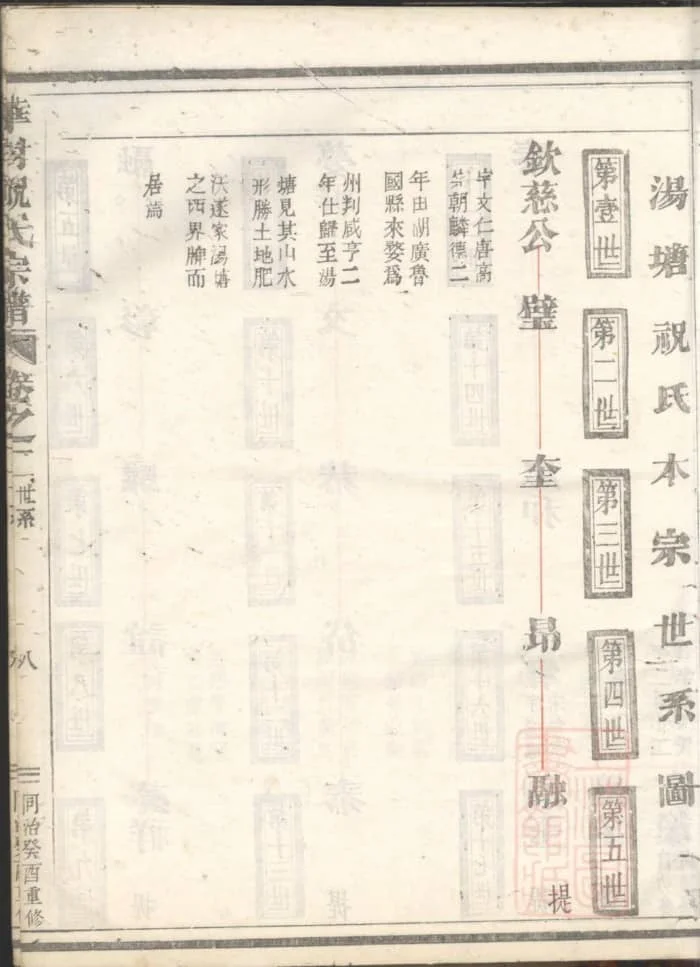 湯塘祝氏本宗世系圖
第壹世
第二世
第三世
第四世
第五世
欽慈公
璧
奎
昂
融
提
字文仁唐高
宗朝麟德二
年由湖廣魯
國縣來婺爲
州判咸亨二
年仕歸至湯
塘見其山水
形勝土地肥
沃遂家湯塘
之西界脾而
居焉
祝氏宗譜
卷之一
世系
八
同治癸酉重修